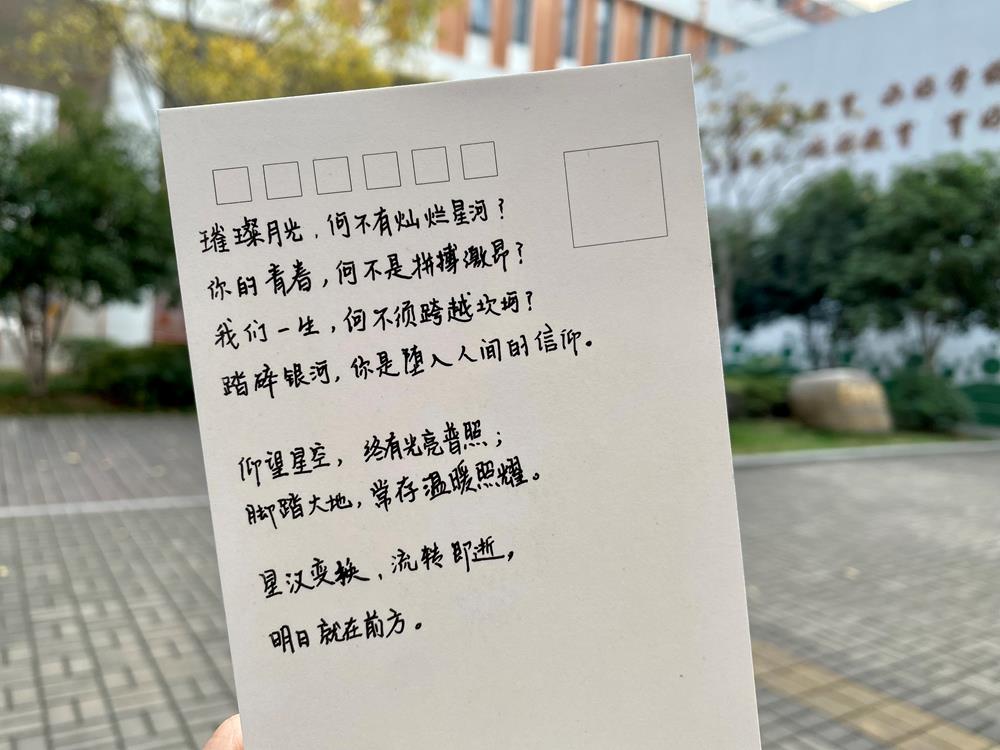 璀璨月光，何不有灿烂星河？
你的青春，何不是拼搏激昂？
我们一生，何不须跨越坎坷？
踏碎银河，你是堕入人间的信仰。
仰望星空，终有光亮普照；
脚踏大地，常存温暖照耀。
星汉变换，流转即逝，
明日就在前方。